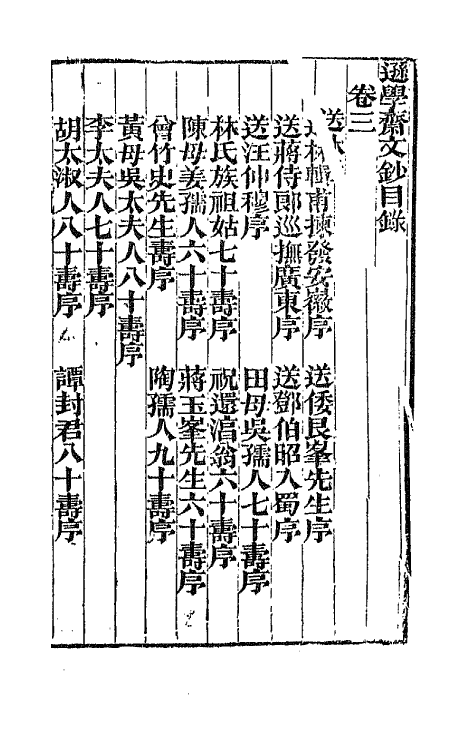 遜學齋文鈔目錄
卷三
送
林戟甫揀發安徽序　送倭艮峯先生序
送蔣侍郎巡撫廣東序　送鄧伯昭入蜀序
送汪仲穆序　田母吳孺人七十壽序
林氏族祖姑七十壽序　祝還澹翁六十壽序
陳母姜孺人六十壽序　蔣玉峯先生六十壽序
曾竹史先生壽序　陶孺人九十壽序
黃母吳太夫人八十壽序
李太夫人七十壽序
胡太淑人八十壽序　譚封君八十壽序